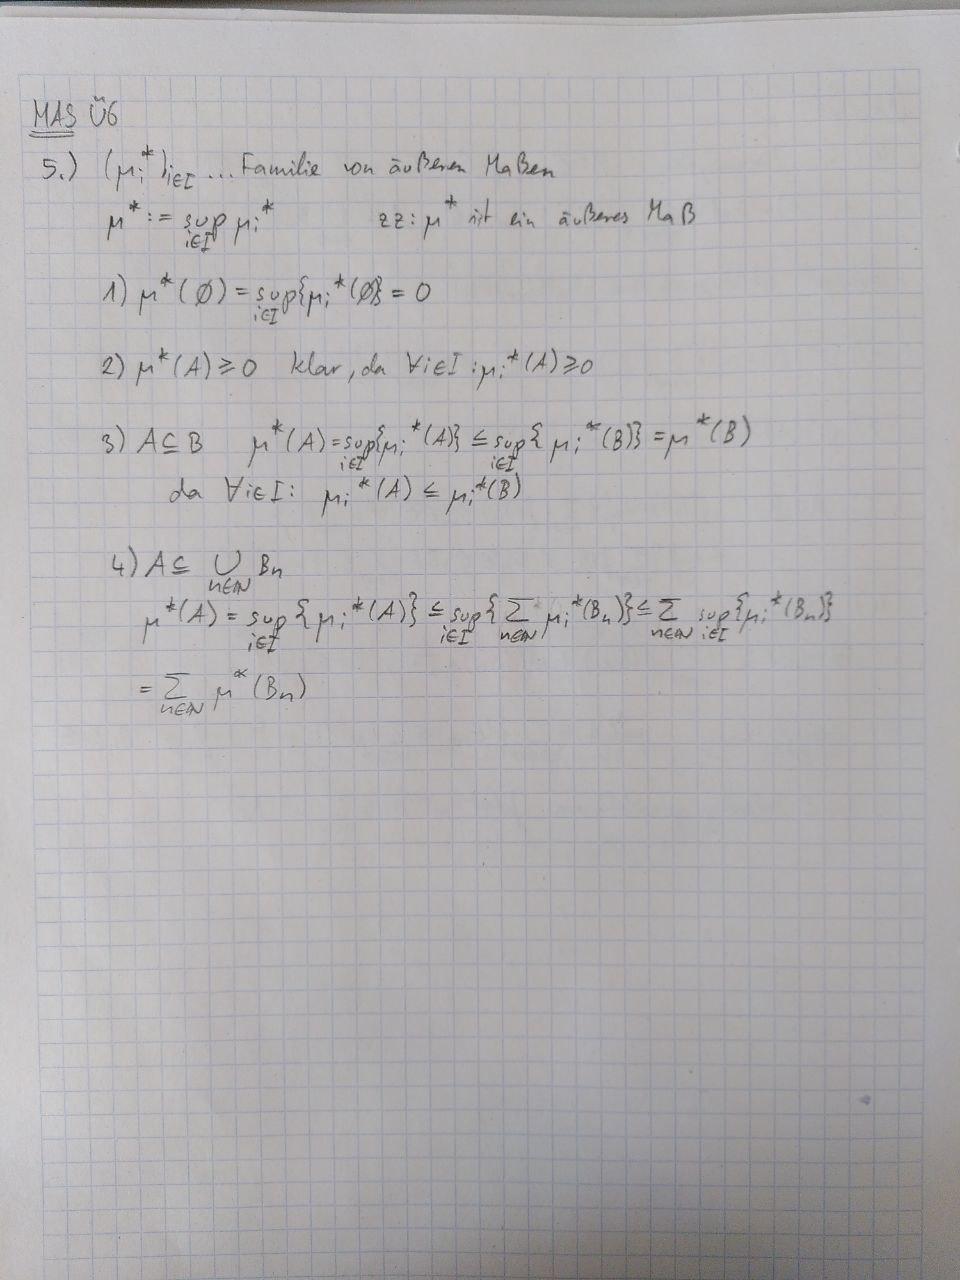 MAS Ü6
5.) (μᵢ*)_{i∈I} ... Familie von äußeren Maßen
μ* := sup_{i∈I} μᵢ* zz: μ* ist ein äußeres Maß
1) μ*(∅) = sup_{i∈I}{μᵢ*(∅)} = 0
2) μ*(A) ≥ 0 klar, da ∀i∈I : μᵢ*(A) ≥ 0
3) A ⊆ B μ*(A) = sup_{i∈I}{μᵢ*(A)} ≤ sup_{i∈I}{μᵢ*(B)} = μ*(B)
da ∀i∈I: μᵢ*(A) ≤ μᵢ*(B)
4) A ⊆ ⋃_{n∈ℕ} Bₙ
μ*(A) = sup_{i∈I}{μᵢ*(A)} ≤ sup_{i∈I}{∑_{n∈ℕ} μᵢ*(Bₙ)} ≤ ∑_{n∈ℕ} sup_{i∈I}{μᵢ*(Bₙ)}
= ∑_{n∈ℕ} μ*(Bₙ)